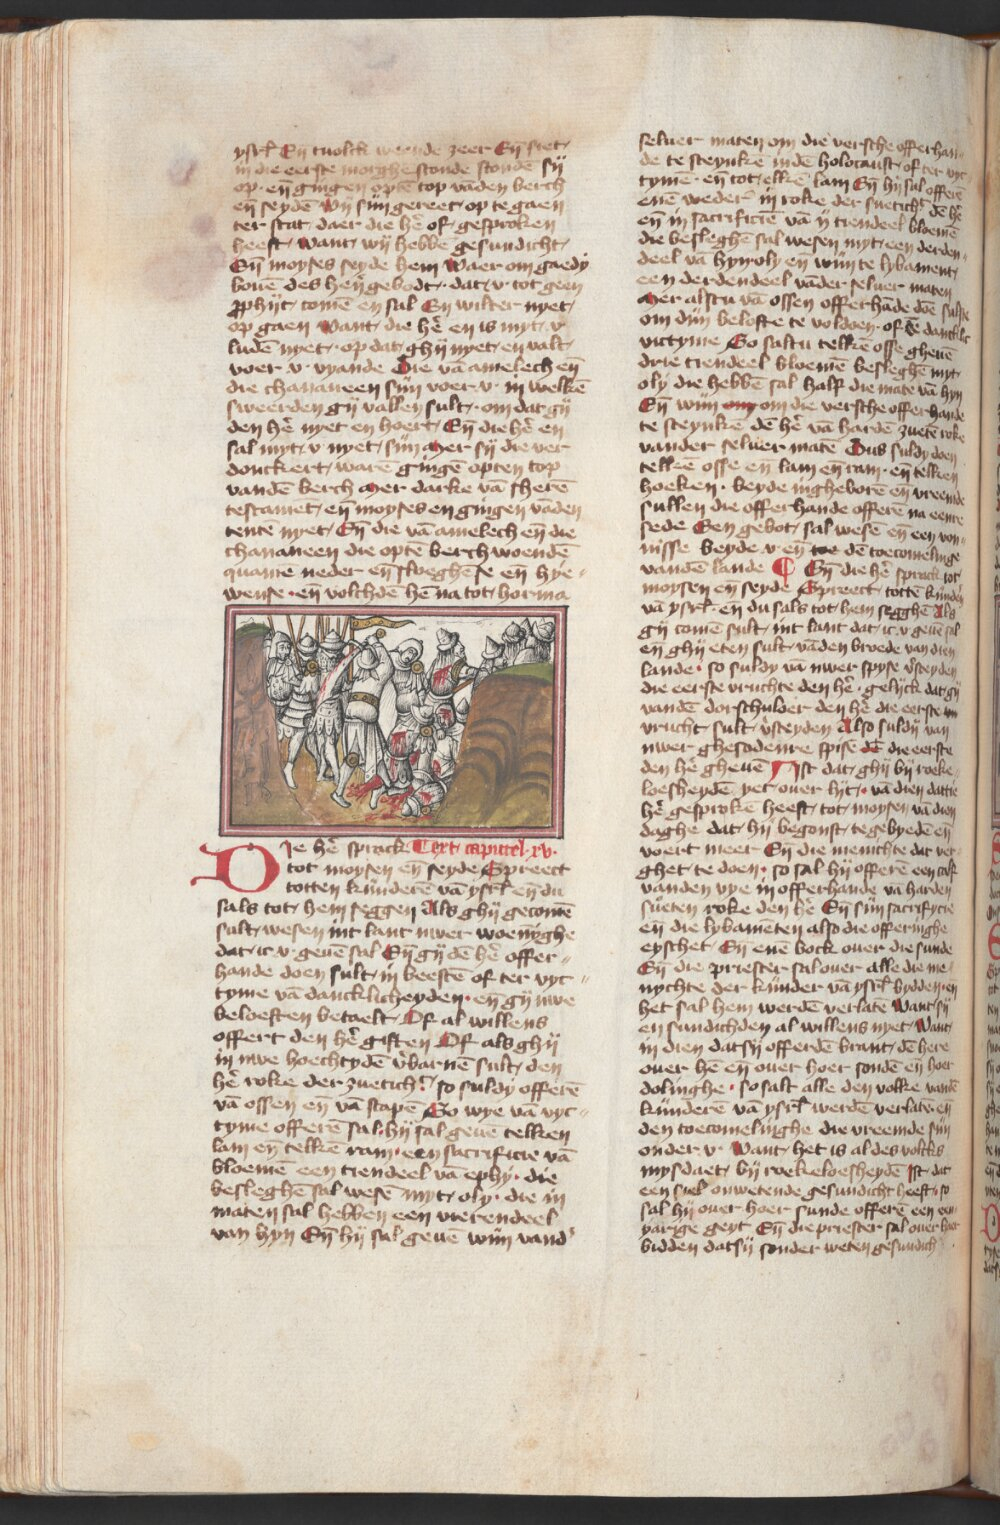 ysrl̃ En̄ tuolck weende zeer En̄ siet
in die eerste morghēstonde stondē sij
op · en̄ gingen optē top vādēn berch
en̄ seydē Wij sijn gereet op te gaen
ter stat daer die hẽ of gesproken
heeft Want wij hebbē gesundicht
En̄ moyses seyde hem Waer om gaedy
bouē des herē gebodt · dat v tot geen
ꝓphijt comē en sal En wilter nyet
op gaen Want die hẽ en is myt v
ludē nyet · op dat ghij nyet en valt
voer v vyande Die vā amelech en̄
die chananeen sijn voer v in welkē
sweerden gij vallen sult · om dat gij
den hẽ nyet en hoert En̄ die hẽ en
sal myt v nyet sijn Mer sij die ver
donckert warē gingē opten top
vandē berch Mer darke vā sherē
testamēt en̄ moyses en gingen vādēn
tentē nyet En̄ die vā amelech en̄ die
chananeen die optē berch woendē
quamē neder en̄ sloeghē se en̄ hye-
wense · en̄ volchdē hē na tot horma
Die hẽ sprack Text capittel xv·
tot moysen en̄ seyde Spreect
totten kijnderē vā ysrl̃ en̄ du
sals tot hem seggen Als ghij gecomē
sult wesen int lant uwer woenijghe
dat ic v geuē sal En̄ gij dē hẽ offer-
hande doen sult in beestē of ter vyc-
tyme vā dancklicheyden · en̄ gij uwe
beloeften betaelt Of al willens
offert den hẽ giften Of als ghij
in uwe hoechtydē v̓barnē sult den
hẽ roke der zueticht̓ so suldy offerē
vā ossen en̄ vā scapē So wye vā vyc-
tyme offerē sal · hij sal geuē telken
lam en̄ telkē ram · een sacrificie vā
bloemē een tiendeel vā ephy · die
besleghē sal wesē myt oly · die in
maten sal hebben een vierendeel
van hyn En̄ hij sal geuē wijn vand̓
seluer maten om die versche offerhan-
de te steynkē indē holocaust of ter vyc
tymē · en̄ tot elkē lam En̄ hij sal offerē
enē weder in roke der sueticht̓ dē hẽ
en̄ in sacrificiē vā ij tiendeel bloemē
die besleghē sal wesen myt een derden-
deel vā hyn oly en̄ wijn te lybament
een derdendeel vāder seluer maten
Mer alstu vā ossen offerhāde doē sulste
om dijn belofte te voldoen · of dancklic
victyme So saltu telkē osse gheuē
drie tiendeel bloemē besleghē myt
oly die hebbē sal half die mate vā hyn
En̄ wijn om die versche offerhande
te steynkē dē hẽ vā hardē zuetē roke
vander seluer matē Dus suldy doen
telkē osse en̄ lam en̄ ram · en̄ telken
hoeken · beyde ingheborē en̄ vreemde
sullen die offerhande offerē na eenre
sede Een gebot sal wesē en̄ een von-
nisse beyde v en̄ dē toecomelinge
vandē lande ¶ En̄ die hẽ sprack tot
moysen en̄ seyde Spreect tottē kijnderē
vā ysrl̃ en̄ du sals tot hem segghē Als
gij comē sult int lant dat ic v geuē sal
en̄ ghij eten sult vādēn broede van dien
lande · so suldy vā uwer spyse v̓steyden
die eerste vruchte den hẽ · gelijck dat gij
vandē dorschuloer den hẽ die eerste
vrucht sult v̓steyden Also suldij van
uwer ghesodenre spisē dē die eerste
den hẽ gheuē Ist dat ghij bij roeke-
loesheydē yet ouer lijt · vā dien dattie
hẽ gesprokē heeft tot moysen vā dien
daghe dat hij begonst te gebyedē en̄
voert meer En̄ die menichte dat ver-
ghet te doen · so sal hij offerē een calf
vanden vye in offerhande vā harden
sueten roke den hẽ En̄ sijn sacrifycie
en̄ die lybamēten also die offeringhe
eyschet En̄ enē bock ouer die sunde
En̄ die priester sal ouer alle die me-
nychte der kijnder vā ysrl̃ bydden · en̄
het sal hem werdē verlatē Want sij
en sundichden al willens nyet Want
in dien dat sij offerdē brant dē here
ouer hē en̄ ouer hoer sondē en̄ hoer
dolinghe · so salt alle den volke vandē
kijnderē vā ysrl̃ werdē verlatē · en̄
den toecomelinghe die vreemde sijn
onder v · Want het is al des volcks
mysdaet bij roekeloesheydē Ist dat
een siel onwetende gesundicht heeft · so
sal hij ouer hoer sunde offerē een een
yarige geyt En̄ die priester sal ouer hoer
bidden dat sij sonder weten gesundich